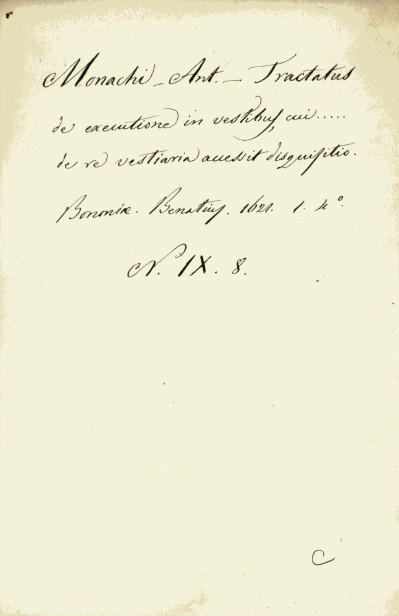 Monachi - Ant. - Tractatus
de executione in vestibus, cui.....
de re vestiaria accessit disquisitio.
Bononiæ. Benatius. 1621. 1. 4°.
N. IX. 8.
C